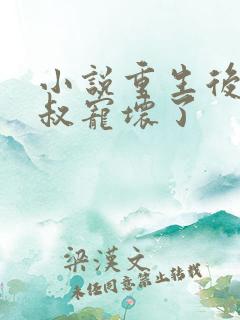 小説重生後
叔寵壞了
梁漢文
未經同意禁止轉載